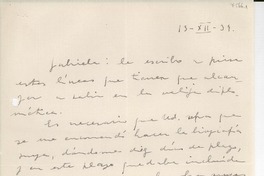 13-XII-39.
Gabriela: le escribo a prisa
estas líneas que tienen que alcan-
zar a salir en la valija diplo-
mática.
Es necesario que Ud. sepa que
se me encomendó hacer la biografía
suya, dándome diez días de plazo,
y en este plazo quedaba incluida